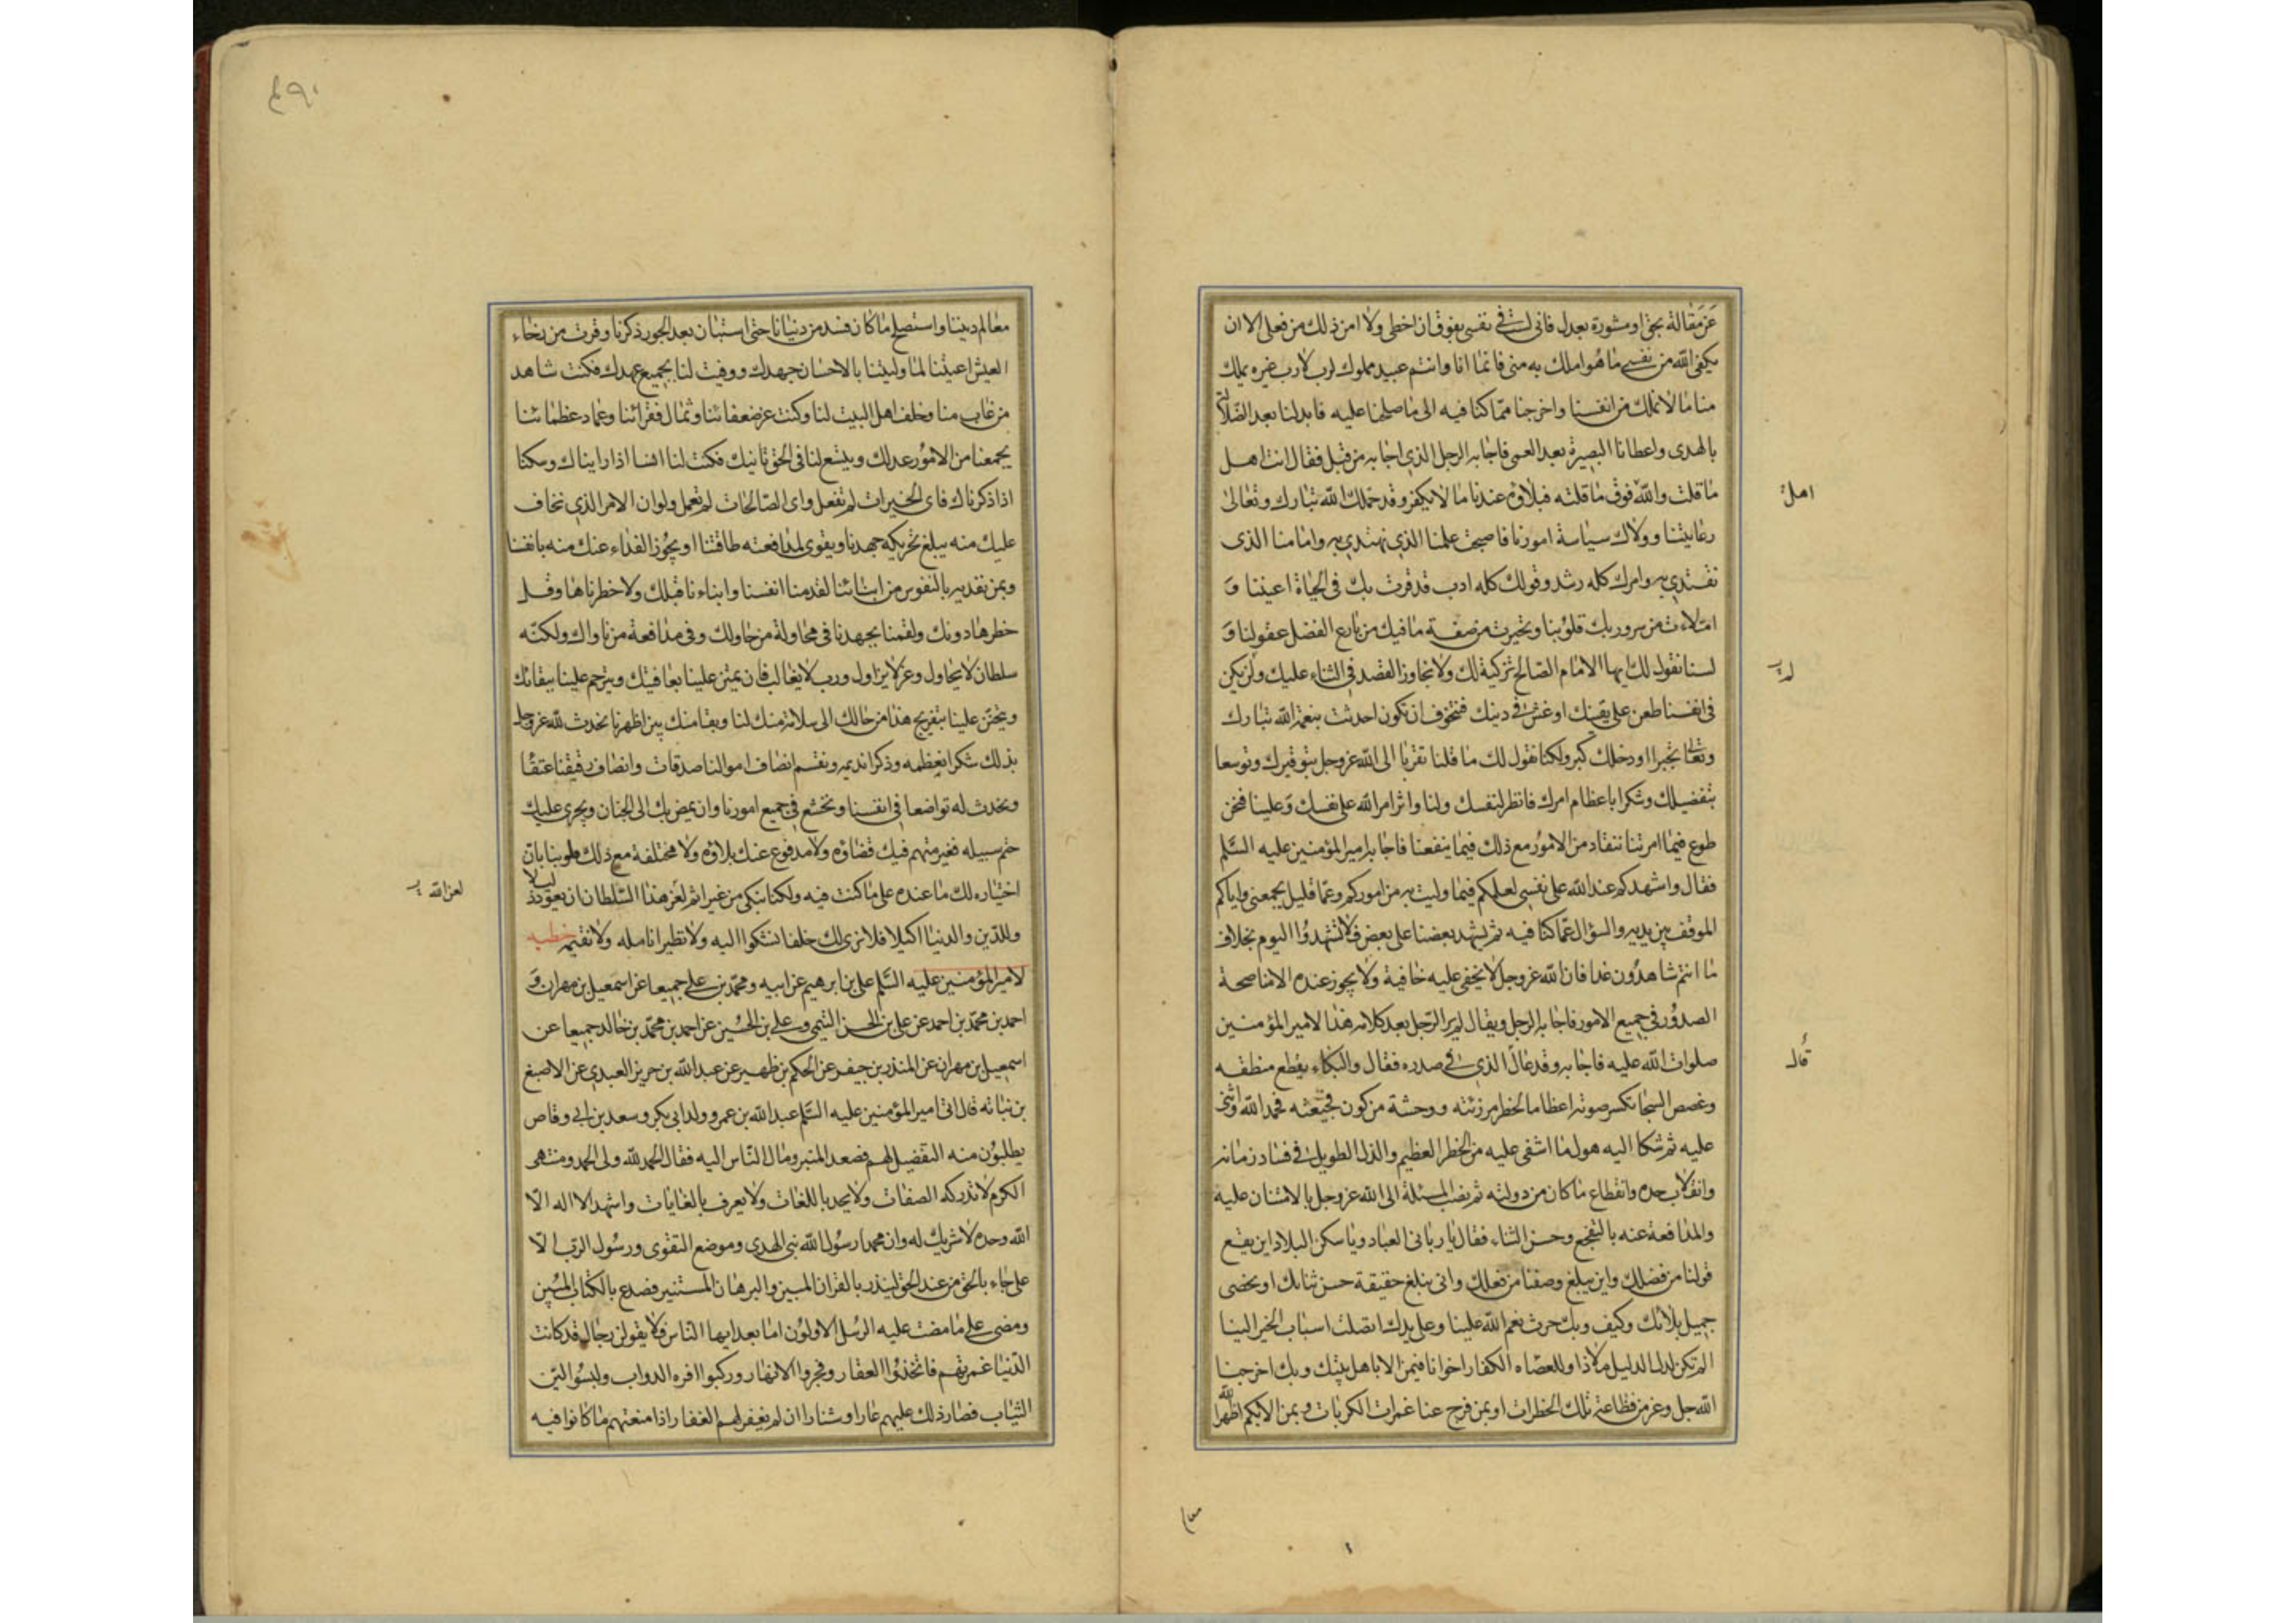 عن مقالة بحق او مشورة بعدل فانى لست فى نفسى بفوق ان اخطى ولا امن ذلك من فعلى الا ان
يكفى الله من نفسى ما هو املك به منى فانما انا وانتم عبيد مملوك لرب لا رب غيره يملك
منا ما لا نملك من انفسنا واخرجنا مما كنا فيه الى ما صلحنا عليه فابدلنا بعد الضلالة
بالهدى واعطانا البصيرة بعد العمى فاجابه الرجل الذى اجابه من قبل فقال انت اهل
ما قلت والله فوق ما قلته فبلاؤه عندنا ما لا يكفر وقد حملك الله تبارك وتعالى
رعايتنا وولاك سياسة امورنا فاصبحت علمنا الذى نهتدى به وامامنا الذى
نقتدى به وامرك كله رشد وقولك كله ادب قد قرت بك فى الحياة اعيننا و
امتلاءت من سرور بك قلوبنا وتحيرت من صفة ما فيك من بارع الفضل عقولنا و
لسنا نقول لك ايها الامام الصالح تزكية لك ولا نجاوز القصد فى الثناء عليك ولن يكن
فى انفسنا طعن على يقينك او غش فى دينك فنتخوف ان تكون احدثت بنعمة الله تبارك
وتعالى تجبرا او دخلك كبر ولكنا نقول لك ما قلنا تقربا الى الله عز وجل بتوقيرك وتوسعا
بتفضيلك وشكرا باعظام امرك فانظر لنفسك ولنا واثر امر الله على نفسك وعلينا فنحن
طوع فيما امرتنا ننقاد من الامور مع ذلك فيما ينفعنا فاجابه امير المؤمنين عليه السلم
فقال واشهدكم عند الله على نفسى لعلمكم فيما وليت به من اموركم وعما قليل يجمعنى واياكم
الموقف بين يديه والسؤال عما كنا فيه ثم يشهد بعضنا على بعض فلا تشهدوا اليوم بخلاف
ما انتم شاهدون غدا فان الله عز وجل لا يخفى عليه خافية ولا يجوز عنده الا مناصحة
الصدور فى جميع الامور فاجابه الرجل ويقال لم ير الرجل بعد كلامه هذا لامير المؤمنين
صلوات الله عليه فاجابه وقد عال الذى فى صدره فقال والبكاء يقطع منطقه
وغصص الشجا تكسر صوته اعظاما لخطر مرزئته ووحشة من كون فجيعته فحمد الله واثنى
عليه ثم شكا اليه هول ما اشفى عليه من الخطر العظيم والذل الطويل فى فساد زمانه
وانقلاب حده وانقطاع ما كان من دولته ثم نصب المسئلة الى الله عز وجل بالامتنان عليه
والمدافعة عنه بالتفجع وحسن الثناء فقال يا ربانى العباد ويا سكن البلاد اين يقع
قولنا من فضلك واين يبلغ وصفنا من فعلك وانى نبلغ حقيقة حسن ثنائك او نحصى
جميل بلائك وكيف وبك جرت نعم الله علينا وعلى يدك اتصلت اسباب الخير الينا
الم تكن لذل الذليل ملاذا وللعصاه الكفار اخوانا فبمن الا باهل بيتك وبك اخرجنا
الله جل وعز من فظاعة تلك الخطرات او بمن فرج عنا غمرات الكربات وبمن الا بكم اظهر الله
اهل
له
قال
معالم
٤٩٠
معالم ديننا واستصلح ما كان فسد من دنيانا حتى استبان بعد الجور ذكرنا وقرت من رخاء
العيش اعيننا لما وليتنا بالاحسان جهدك ووفيت لنا بجميع عهدك فكنت شاهد
من غاب منا وخلف اهل البيت لنا وكنت عز ضعفائنا وثمال فقرائنا وعماد عظمائنا
يجمعنا من الامور عدلك ويتسع لنا فى الحق تانيك فكنت لنا انسا اذا رايناك وسكنا
اذا ذكرناك فاى الخيرات لم تفعل واى الصالحات لم تعمل ولو ان الامر الذى نخاف
عليك منه يبلغ تحريكه جهدنا ويقوى لمدافعته طاقتنا او يجوز الفداء عنك منه بانفسنا
وبمن نفديه بالنفوس من ابنائنا لقدمنا انفسنا وابناءنا قبلك ولاخطرناها وقل
خطرها دونك ولقمنا بجهدنا فى محاولة من حاولك وفى مدافعة من ناواك ولكنه
سلطان لا يحاول وعز لا يزاول ورب لا يغالب فان يمنن علينا بعافيتك ويترحم علينا ببقائك
ويتحنن علينا بتفريج هذا من حالك الى سلامة منك لنا وبقا منك بين اظهرنا نحدث لله عز وجل
بذلك شكرا نعظمه وذكرا نديمه ونقسم انصاف اموالنا صدقات وانصاف رقيقنا عتقا
ونحدث له تواضعا فى انفسنا ونخشع فى جميع امورنا وان يمض بك الى الجنان ويجرى عليك
حتم سبيله فغير متهم فيك قضاؤه ولا مدفوع عنك بلاؤه ولا مختلفة مع ذلك قلوبنا بان
اختياره لك ما عنده على ما كنت فيه ولكنا نبكى من غير اثم لعز هذا السلطان ان يعود ذليلا
وللدين والدنيا اكيلا فلا نرى لك خلفا نشكوا اليه ولا نظيرا نامله ولا نقيمه خطبه
لامير المؤمنين عليه السلم على بن ابرهيم عن ابيه ومحمد بن على جميعا عن اسمعيل بن مهران و
احمد بن محمد بن احمد عن على بن الحسن التيمى وعلى بن الحسين عن احمد بن محمد بن خالد جميعا عن
اسمعيل بن مهران عن المنذر بن جيفر عن الحكم بن ظهير عن عبد الله بن حريز العبدى عن الاصبغ
بن نباته قال اتى امير المؤمنين عليه السلم عبد الله بن عمرو وولد ابى بكر وسعد بن ابى وقاص
يطلبون منه التفضيل لهم فصعد المنبر ومال الناس اليه فقال الحمد لله ولى الحمد ومنتهى
الكرم لا تدركه الصفات ولا يحد باللغات ولا يعرف بالغايات واشهد ان لا اله الا
الله وحده لا شريك له وان محمدا رسول الله نبى الهدى وموضع التقوى ورسول الرب الا
على جاء بالحق من عند الحق لينذر بالقران المبين والبرهان المستنير فصدع بالكتاب المبين
ومضى على ما مضت عليه الرسل الاولون اما بعد ايها الناس فلا يقولن رجال قد كانت
الدنيا غمرتهم فاتخذوا العقار وفجروا الانهار وركبوا افره الدواب ولبسوا الين
الثياب فصار ذلك عليهم عارا وشنارا ان لم يغفر لهم الغفار اذا منعتهم ما كانوا فيه
لعز الله